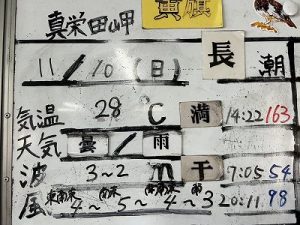 真栄田岬
黄旗
長潮
11/10(日)
気温 28℃ 満 14:22 163
天気 曇/雨 干
波 3~2m 7:05 54
風 東南東 4~5~4~3 20:11 98